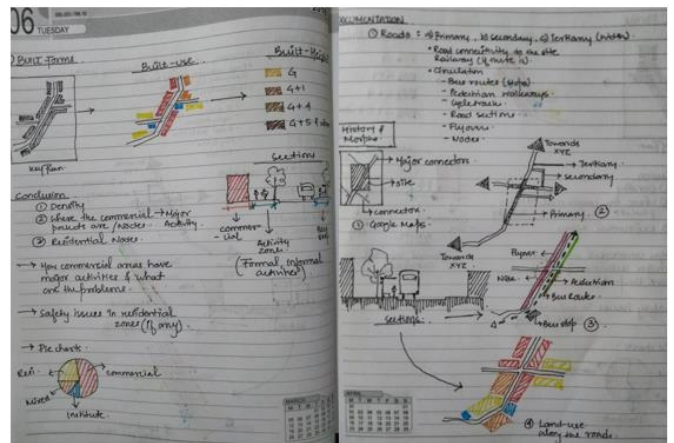 06
TUESDAY
BUILT FORMS
Built-use
Built-Height
G
G+1
G+4
Key Plan
Section
Conclusion
① Density
② Where the commercial → Major
pockets are / Nodes. Activity.
③ Residential Nodes
commer-
cial
Activity
zone
(Formal, Informal
activities)
→ How commercial areas have
major activities & what
are the problems.
→ Safety issues in residential
zones (if any).
→ Pie charts
Resi.
commercial
Mixed
Institute
MARCH
DOCUMENTATION
① Roads : a) Primary, b) Secondary, c) Tertiary
• Road connectivity to the site
Railway (if route is)
• Circulation
- Bus routes
- Pedestrian walkways
- Cycle track
- Road sections
- Flyovers
- Nodes
History &
Morpho
→ Major connectors
→ site
→ connectors
① Google Maps
Towards
XYZ
→ Tertiary
→ secondary
→ Primary
②
Towards
XYZ
Flyover
Node
→ Pedestrian
→ Bus Routes
→ Bus stop ③
Sections
APRIL
④ Land-use
along the roads